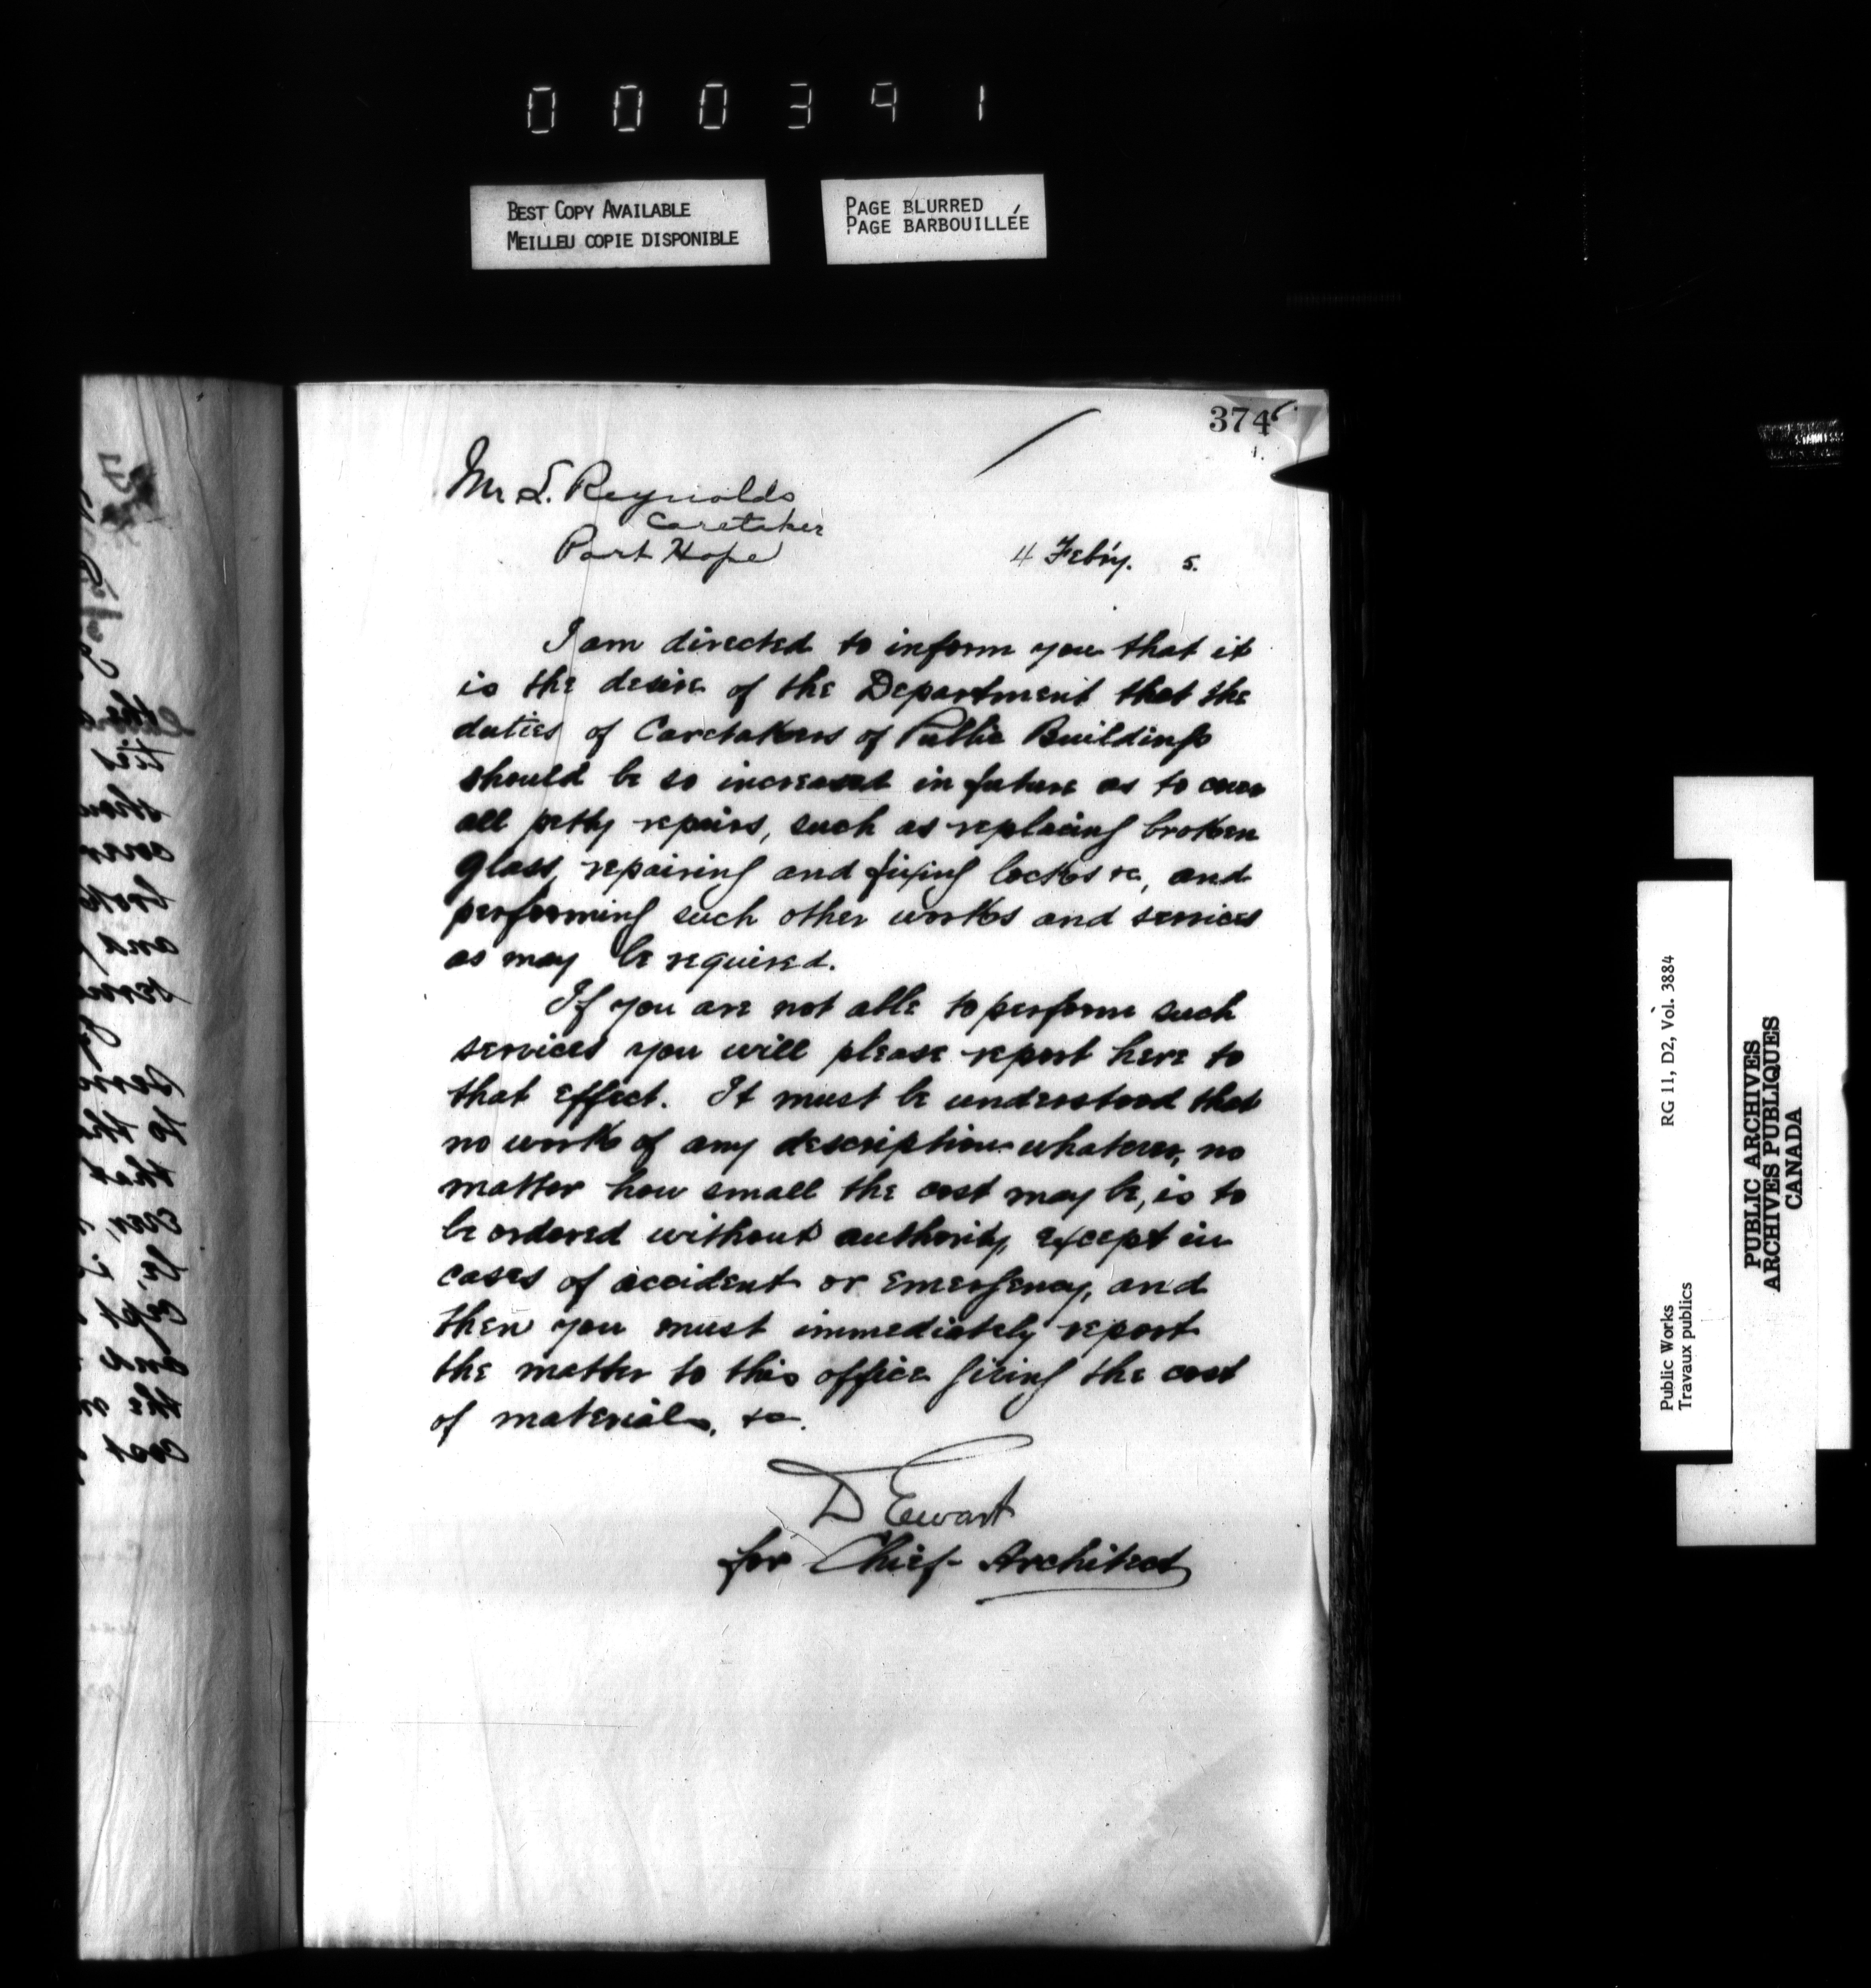 000391
BEST COPY AVAILABLE
MEILLEU COPIE DISPONIBLE
PAGE BLURRED
PAGE BARBOUILLÉE
374
Mr S. Reynolds
Caretaker
Port Hope
4 Feb'ry. 5.
I am directed to inform you that it
is the desire of the Department that the
duties of Caretakers of Public Buildings
should be so increased in future as to cover
all petty repairs, such as replacing broken
glass, repairing and fixing locks &c, and
performing such other works and services
as may be required.
If you are not able to perform such
services you will please report here to
that effect. It must be understood that
no work of any description whatever, no
matter how small the cost may be, is to
be ordered without authority, except in
cases of accident or emergency, and
then you must immediately report
the matter to this office giving the cost
of materials, &c.
D Ewart
for Chief Architect
Public Works
Travaux publics
RG 11, D2, Vol. 3884
PUBLIC ARCHIVES
ARCHIVES PUBLIQUES
CANADA